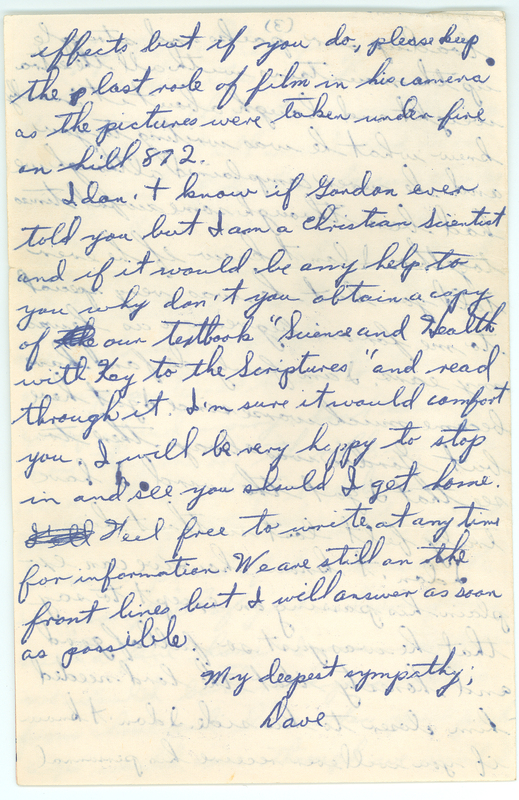 effects but if you do, please keep
the last role of film in his camera
as the pictures were taken under fire
on hill 872.
I don't know if Gordon ever
told you but I am a Christian Scientist
and if it would be any help to
you why don't you obtain a copy
of the our textbook "Science and Health
with Key to the Scriptures" and read
through it I'm sure it would comfort
you. I will be very happy to stop
in and see you should I get home.
Feel free to write at any time
for information. We are still on the
front lines but I will answer as soon
as possible.
My deepest sympathy;
Dave